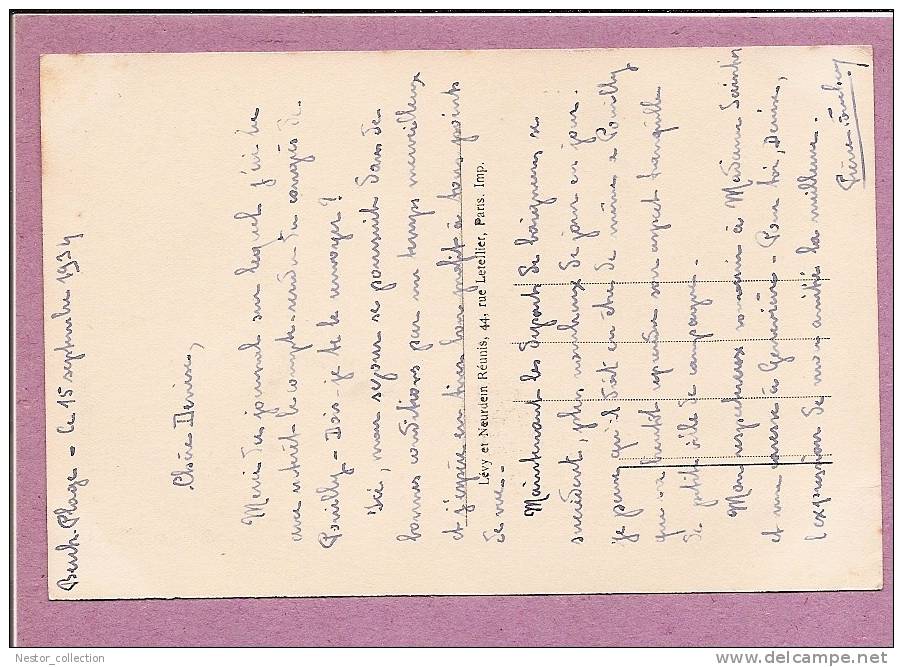 Berck-Plage - le 15 septembre 1934
Chère Denise,
Merci du journal sur lequel j'ai lu
avec intérêt le compte-rendu du congrès de
Pouilly - Dois-je te le renvoyer ?
Ici, mon séjour se poursuit dans de
bonnes conditions par un temps merveilleux
et j'espère en tirer bon profit à tous points
de vue. -
Maintenant les départs de baigneurs se
succèdent, plus nombreux de jour en jour.
Je pense qu'il doit en être de même à Pouilly
que va bientôt reprendre son aspect tranquille
de petite ville de campagne.
Mon respectueux souvenir à Madame
et une caresse à Geneviève - Pour toi, Denise,
l'expression de mon amitié la meilleure.
Pierre
Lévy et Neurdein Réunis, 44, rue Letellier, Paris. Imp.
Nestor_collection
delcampe.net